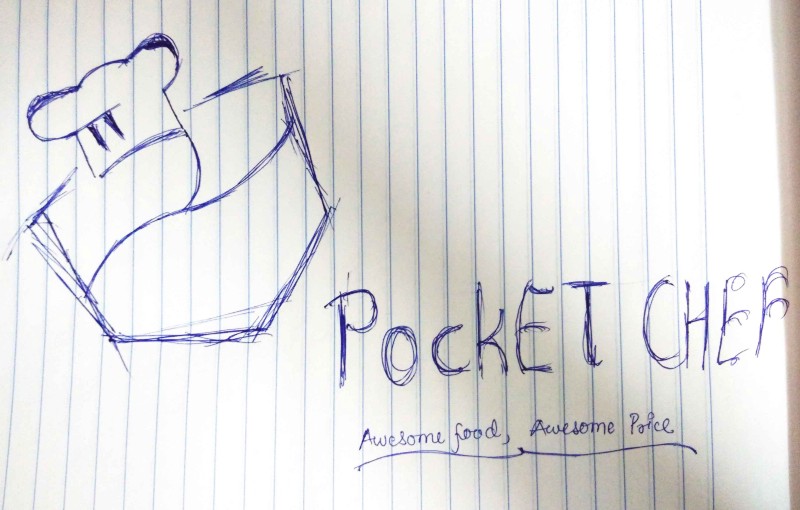 POCKET CHEF
Awesome food, Awesome Price